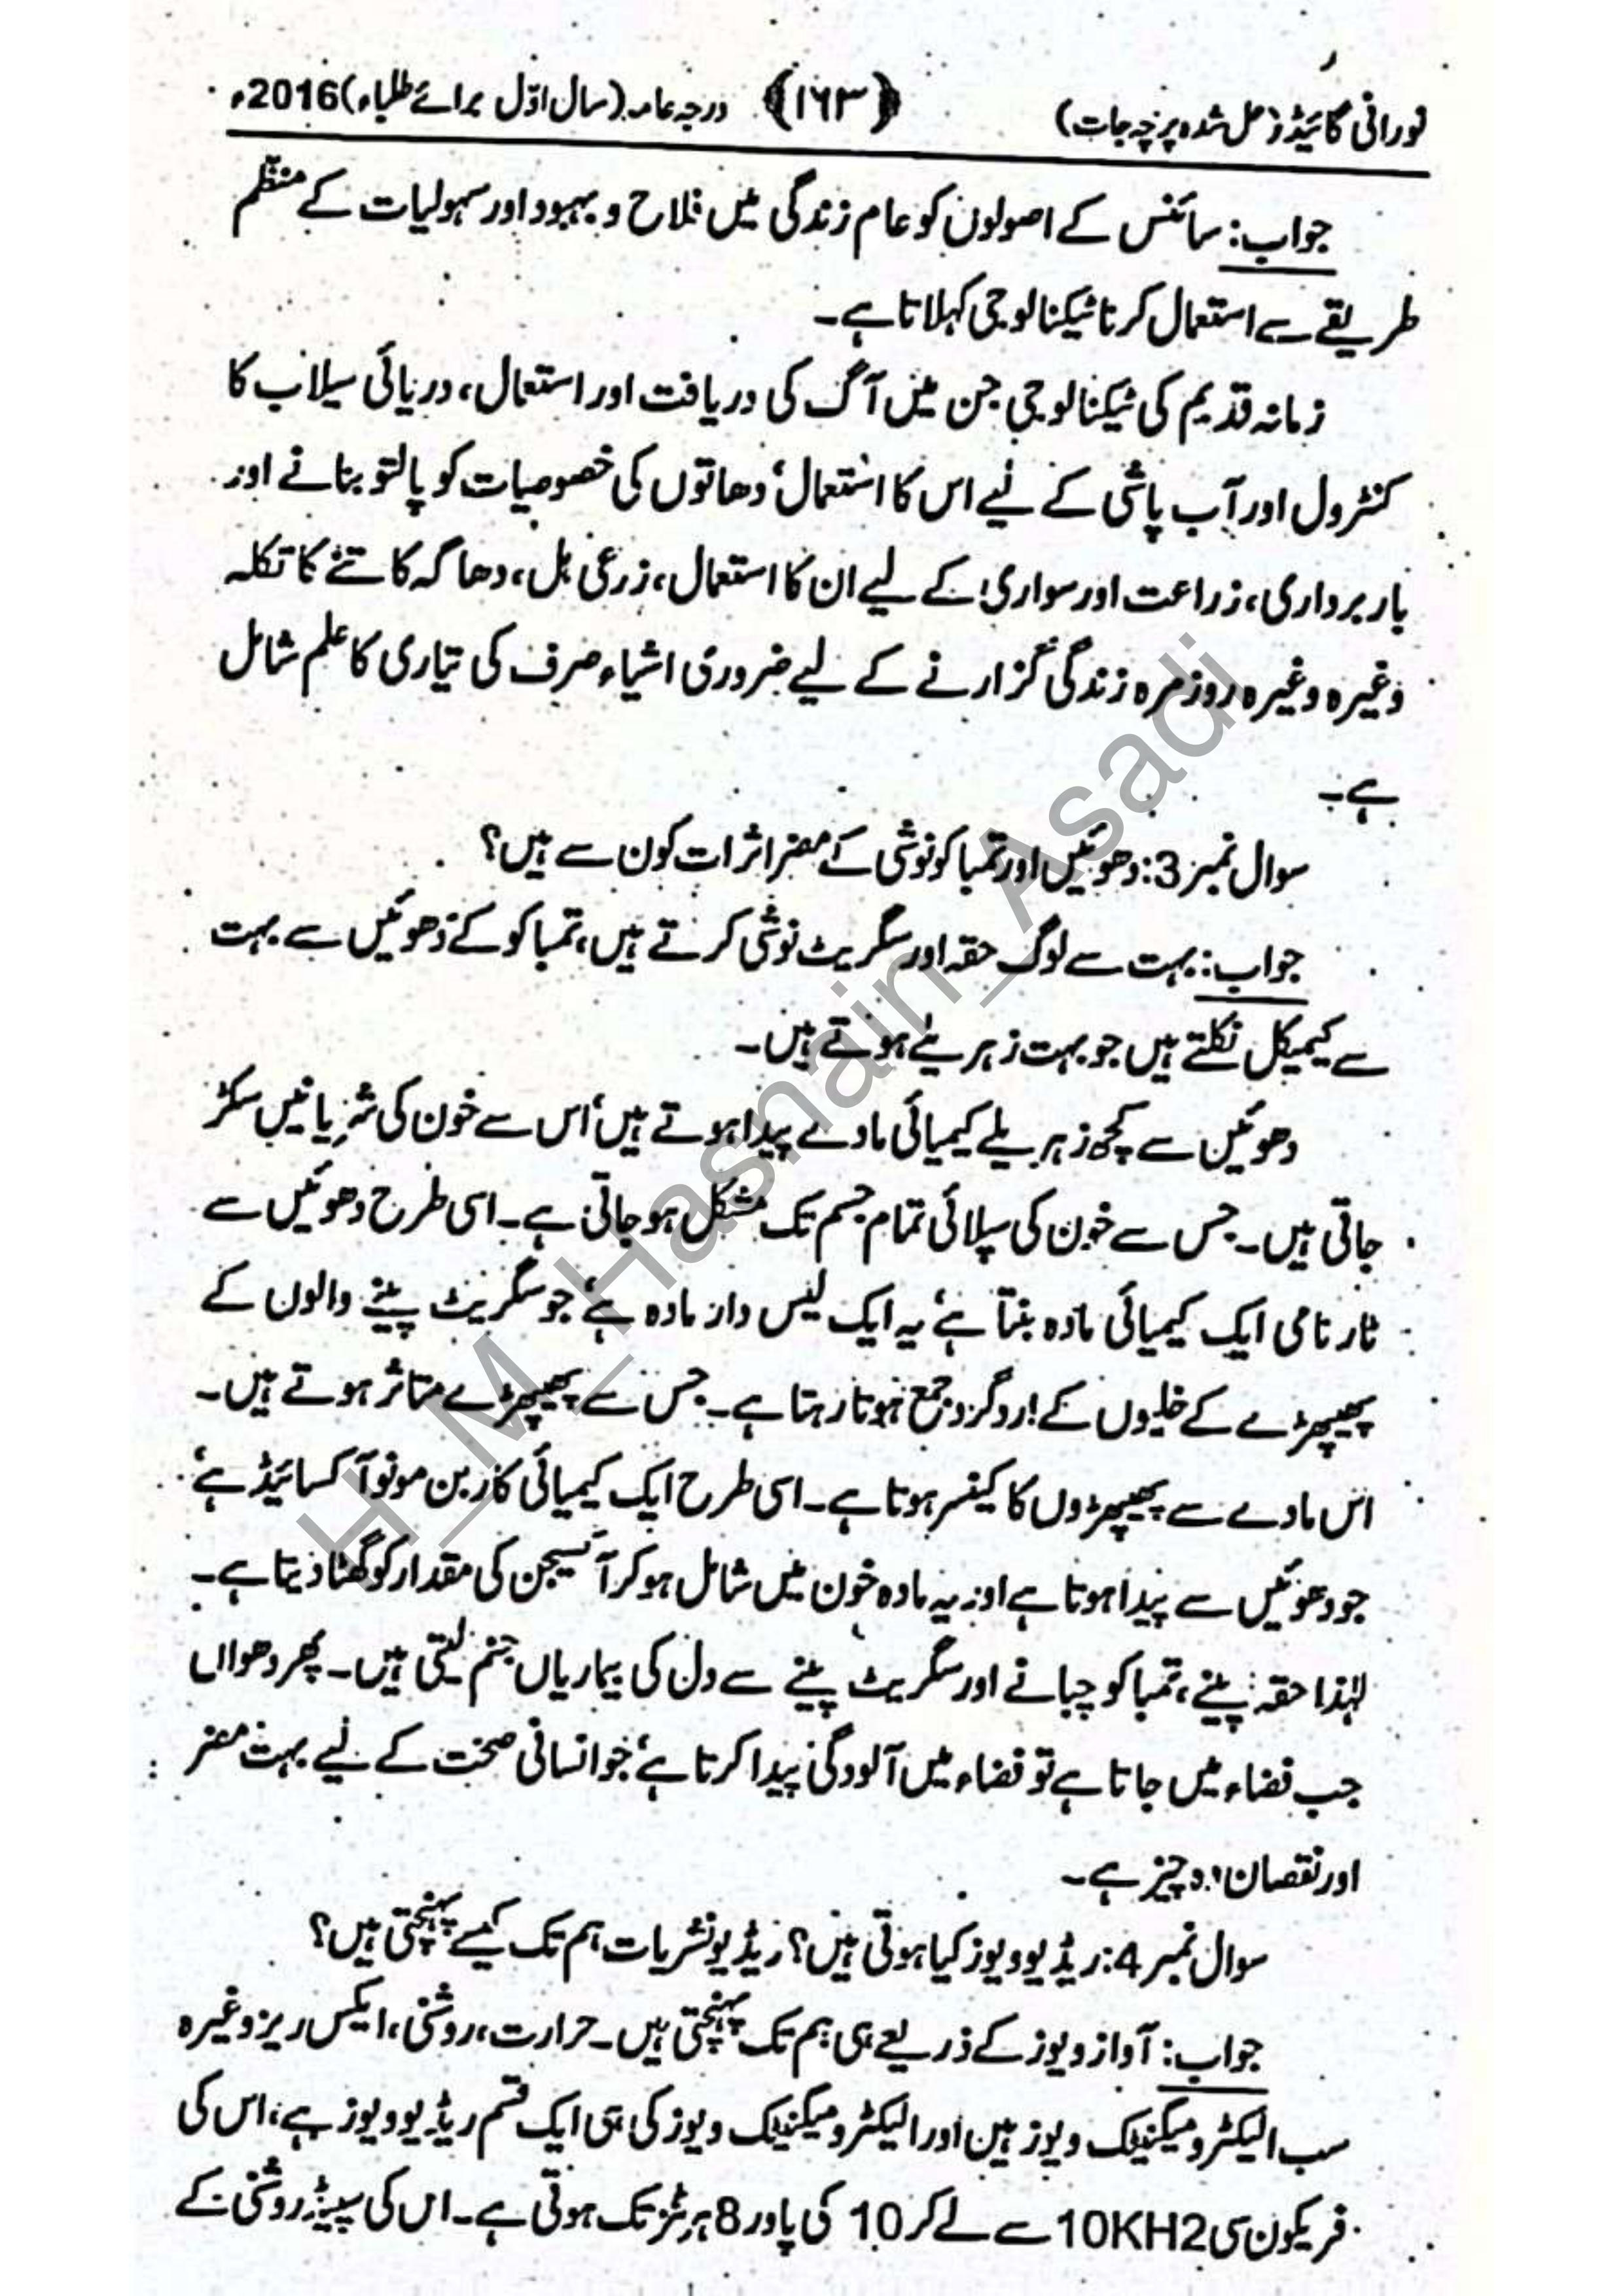 نورانی گائیڈ (حل شدہ پرچہ جات) ﴿۱۶۳﴾ درجہ عامہ (سال اوّل برائے طلباء) 2016ء
جواب: سائنس کے اصولوں کو عام زندگی میں فلاح و بہبود اور سہولیات کے منظم
طریقے سے استعمال کرنا ٹیکنالوجی کہلاتا ہے۔
زمانہ قدیم کی ٹیکنالوجی جن میں آگ کی دریافت اور استعمال، دریائی سیلاب کا
کنٹرول اور آب پاشی کے لیے اس کا استعمال، دھاتوں کی خصوصیات کو پالتو بنانے اور
بار برداری، زراعت اور سواری کے لیے ان کا استعمال، زرعی ہل، دھاگہ کاتنے کا تکلہ
وغیرہ وغیرہ روزمرہ زندگی گزارنے کے لیے ضروری اشیاء صرف کی تیاری کا علم شامل
ہے۔
سوال نمبر 3: دھوئیں اور تمباکو نوشی کے مضر اثرات کون سے ہیں؟
جواب: بہت سے لوگ حقہ اور سگریٹ نوشی کرتے ہیں، تمباکو کے دھوئیں سے بہت
سے کیمیکل نکلتے ہیں جو بہت زہریلے ہوتے ہیں۔
دھوئیں سے کچھ زہریلے کیمیائی مادے پیدا ہوتے ہیں، اس سے خون کی شریانیں سکڑ
جاتی ہیں۔ جس سے خون کی سپلائی تمام جسم تک مشکل ہو جاتی ہے۔ اسی طرح دھوئیں سے
ٹار نامی ایک کیمیائی مادہ بنتا ہے، یہ ایک لیس دار مادہ ہے، جو سگریٹ پینے والوں کے
پھیپھڑے کے خلیوں کے اردگرد جمع ہوتا رہتا ہے۔ جس سے پھیپھڑے متاثر ہوتے ہیں۔
اس مادے سے پھیپھڑوں کا کینسر ہوتا ہے۔ اسی طرح ایک کیمیائی کاربن مونو آکسائیڈ ہے،
جو دھوئیں سے پیدا ہوتا ہے اور یہ مادہ خون میں شامل ہو کر آکسیجن کی مقدار کو گھٹا دیتا ہے۔
لہٰذا حقہ پینے، تمباکو چبانے اور سگریٹ پینے سے دل کی بیماریاں جنم لیتی ہیں۔ پھر دھواں
جب فضاء میں جاتا ہے تو فضاء میں آلودگی پیدا کرتا ہے، جو انسانی صحت کے لیے بہت مضر
اور نقصان دہ چیز ہے۔
سوال نمبر 4: ریڈیو ویوز کیا ہوتی ہیں؟ ریڈیو نشریات ہم تک کیسے پہنچتی ہیں؟
جواب: آواز ویوز کے ذریعے ہی ہم تک پہنچتی ہیں۔ حرارت، روشنی، ایکس ریز وغیرہ
سب الیکٹرومیگنیٹک ویوز ہیں اور الیکٹرومیگنیٹک ویوز کی ہی ایک قسم ریڈیو ویوز ہے، اس کی
فریکون سی 10KH2 سے لے کر 10 کی پاور 8 ہرٹز تک ہوتی ہے۔ اس کی سپیڈ روشنی کے
H_M_Hasnain_Asadi